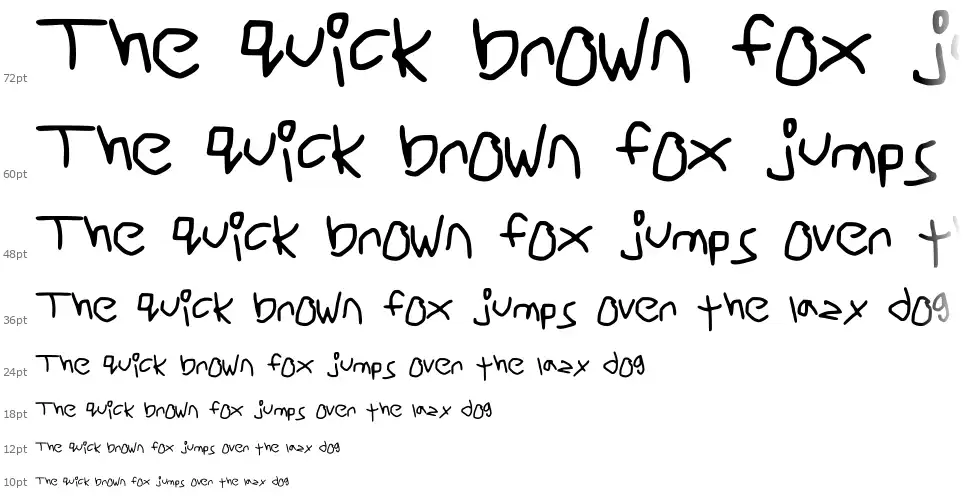 72pt The quick brown fox j
60pt The quick brown fox jumps
48pt The quick brown fox jumps over t
36pt The quick brown fox jumps over the lazy dog
24pt The quick brown fox jumps over the lazy dog
18pt The quick brown fox jumps over the lazy dog
12pt The quick brown fox jumps over the lazy dog
10pt The quick brown fox jumps over the lazy dog